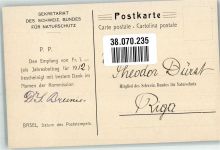 SEKRETARIAT
DES SCHWEIZ. BUNDES
FÜR NATURSCHUTZ
Postkarte
Carte postale - Cartolina postale
38.070.235
P. P.
Den Empfang von Fr. 1.—
als Jahresbeitrag für 1912
bescheinigt mit bestem Dank im
Namen der Kommission:
BASEL, Datum des Poststempels.
Theodor Dürst
Mitglied des Schweiz. Bundes für Naturschutz
Riga